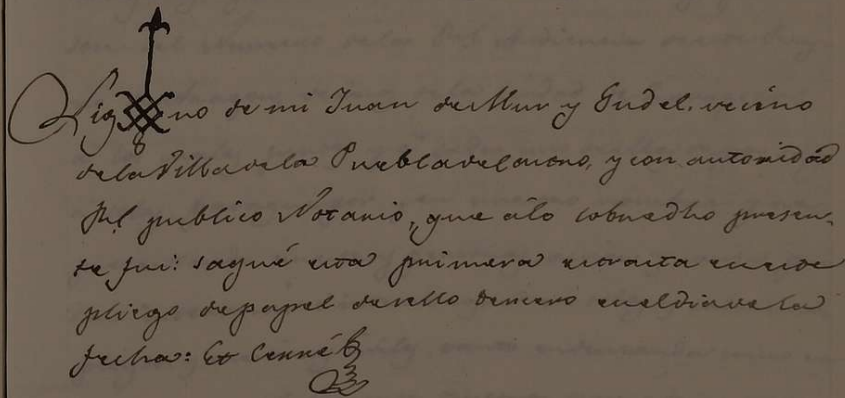 Sig no de mi Juan de Mur y Gudel, vecino
de la Villa de la Puebla de , y con autoridad
Rl publico Notario, que álo sobredho presen-
te fui: saqué esta primera extracta en este
pliego de papel de sello tercero en el dia de la
fecha: Et Cerré